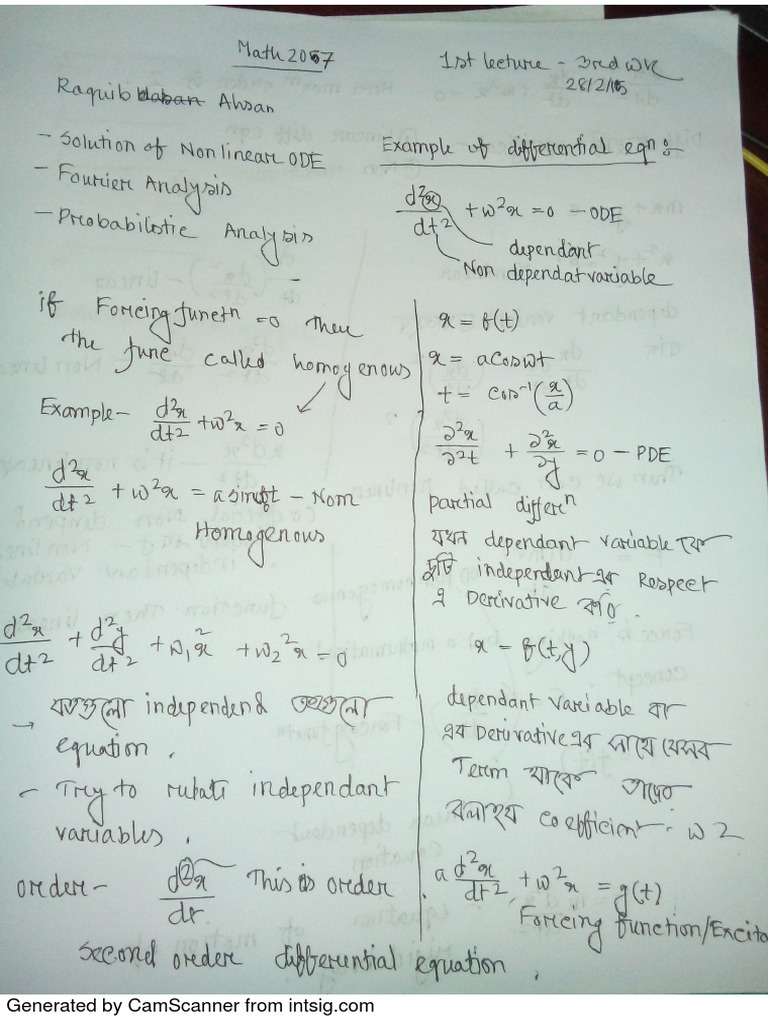 Math 2057
1st lecture - 3rd WK
28/2/15
Raquib Ahsan
- Solution of Nonlinear ODE
- Fourier Analysis
- Probabilistic Analysis
Example of differential eqn :-
d²x/dt² + ω²x = 0 - ODE
dependant
Non dependat variable
if Forcing functn = 0 then
the func called homogenous
Example - d²x/dt² + ω²x = 0
d²x/dt² + ω²x = a sin t - Nom
Homogenous
d²x/dt² + d²y/dt² + ω₁²x + ω₂²x = 0
→ যতগুলো independend ততগুলো
equation .
- Try to rulati independant
variables .
order - d²x/dt This is order
second order differential equation .
x = f(t)
x = a cos ωt
t = cos⁻¹(x/a)
∂²x/∂²t + ∂²x/∂y = 0 - PDE
partial differⁿ
যখন dependant variable কে
দুটি independant এর Respect
এ Derivative করি .
x = f(t,y)
dependant variable বা
এর Derivative এর সাথে যেসব
Term থাকে তাদের
বলা হয় coefficient . ω 2
a d²x/dt² + ω²x = g(t)
Forcing function/Excita
Generated by CamScanner from intsig.com